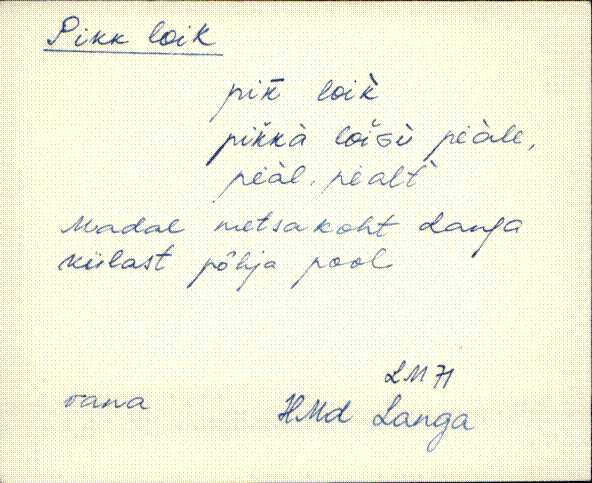 Pikk loik
pik̄ loik̀
pik̆kà loigù peàle,
peàl, pealt̀
Madal metsa koht Langa
külast põhja pool
LM 71
vana HMd Langa